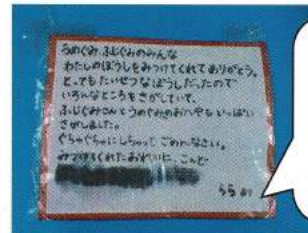 うめぐみ ふじぐみのみんな
わたしのぼうしをみつけてくれてありがとう。
とってもたいせつなぼうしだったので
いろんなところをさがしていて、
ふじぐみさんとうめぐみのおへやもいっぱい
さがしました。
ぐちゃぐちゃにしちゃってごめんなさい。
みつけてくれたおれいに、こんど
ららより